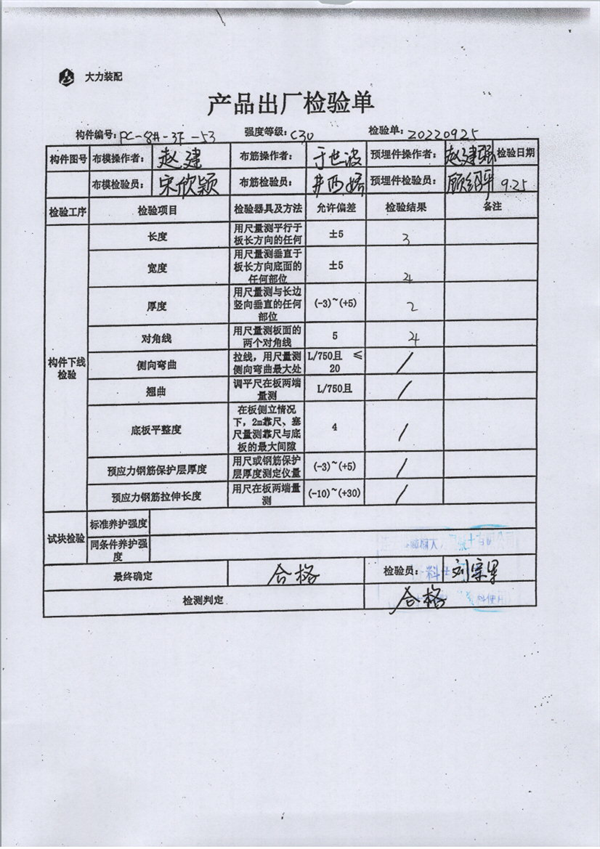 大力装配
产品出厂检验单
构件编号:PC-8#-3F-53 强度等级:C30 检验单:20220925
构件图号 布模操作者: 赵建 布筋操作者: 于世波 预埋件操作者: 检验日期
布模检验员: 宋欣颖 布筋检验员: 预埋件检验员: 9.25
检验工序 检验项目 检验器具及方法 允许偏差 检验结果 备注
构件下线检验
长度 用尺量测平行于板长方向的任何 ±5 3
宽度 用尺量测垂直于板长方向底面的任何部位 ±5 4
厚度 用尺量测与长边竖向垂直的任何部位 (-3)~(+5) 2
对角线 用尺量测板面的两个对角线 5 4
侧向弯曲 拉线，用尺量测侧向弯曲最大处 L/750且 ≤20 /
翘曲 调平尺在板两端量测 L/750且 /
底板平整度 在板侧立情况下，2m靠尺、塞尺量测靠尺与底板的最大间隙 4 /
预应力钢筋保护层厚度 用尺或钢筋保护层厚度测定仪量 (-3)~(+5) /
预应力钢筋拉伸长度 用尺在板两端量测 (-10)~(+30) /
试块检验 标准养护强度
同条件养护强度
最终确定 合格 检验员:
检测判定 合格